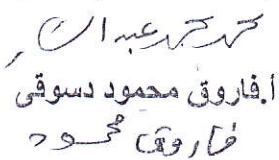 محمد محمد عبد
ا.فاروق محمود دسوقى
فاروق محمود